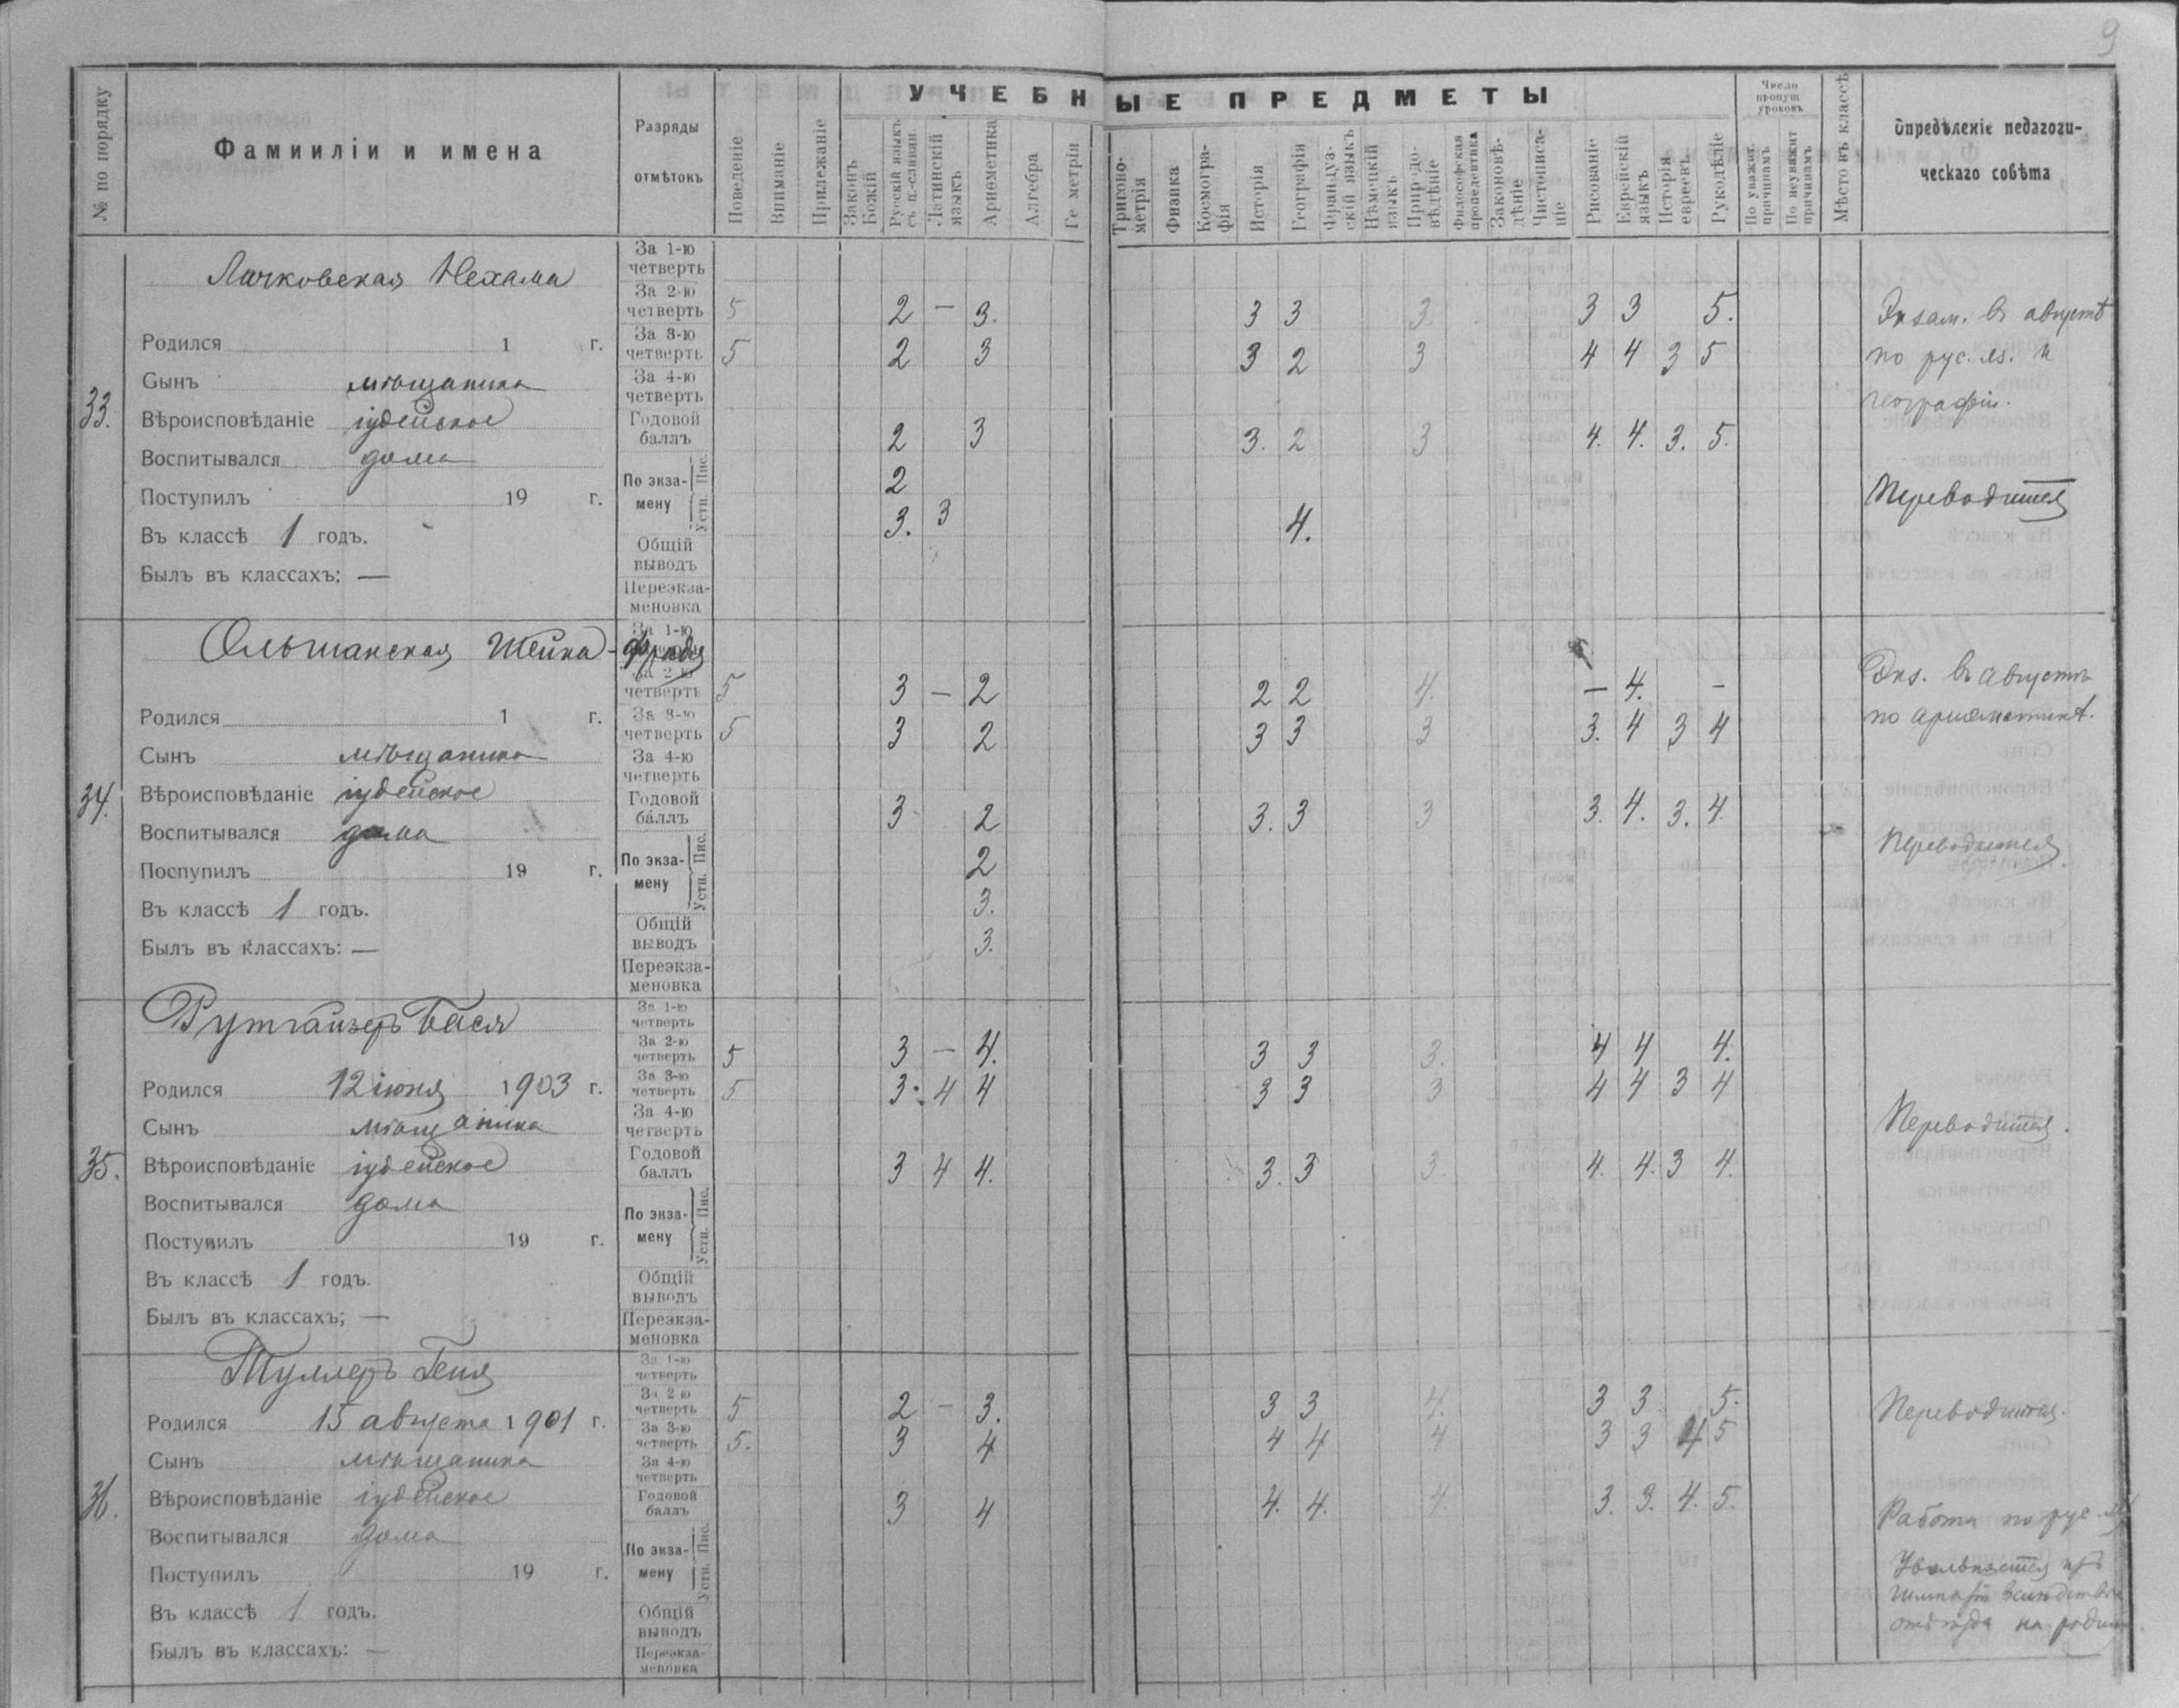 9
УЧЕБНЫЕ ПРЕДМЕТЫ
№ по порядку
Фамииліи и имена
Разряды отмѣтокъ
Поведеніе
Вниманіе
Прилежаніе
Законъ Божій
Русскій языкъ съ ц.-славян
Латинскій языкъ
Ариѳметика
Алгебра
Ге метрія
Тригоно-метрія
Физика
Космогра-фія
Исторія
Географія
Французскій языкъ
Нѣмецкій языкъ
Природо-вѣдѣніе
Философская пропедевтика
Законовѣ-дѣніе
Чистописа-ніе
Рисованіе
Еврейскій языкъ
Исторія евреевъ
Рукодѣліе
Число пропущ. уроковъ
По уважит. причинамъ
По неуважит причинамъ
Мѣсто въ классѣ
Опредѣленіе педагоги-
ческаго совѣта
33.
Личковская Нехама
Родился 1 г.
Сынъ мѣщанина
Вѣроисповѣданіе іудейское
Воспитывался дома
Поступилъ 19 г.
Въ классѣ 1 годъ.
Былъ въ классахъ: —
За 1-ю четверть
За 2-ю четверть 5 2 — 3. 3 3 3. 3 3 5.
За 3-ю четверть 5 2 3 3 2 3 4 4 3 5
За 4-ю четверть
Годовой баллъ 2 3 3. 2 3 4. 4. 3. 5.
По экза-мену Пис. 2
Устн. 3. 3 4.
Общій выводъ
Переэкза-меновка
Экзам. въ августѣ
по рус. яз. и
географіи.
Переводится
34.
Ольшанская Шейна-Фрадя
Родился 1 г.
Сынъ мѣщанина
Вѣроисповѣданіе іудейское
Воспитывался дома
Поспупилъ 19 г.
Въ классѣ 1 годъ.
Былъ въ классахъ: —
За 1-ю
За 2-ю четверть 5 3 — 2 2 2 4. — 4. —
За 3-ю четверть 5 3 2 3 3 3 3. 4 3 4
За 4-ю четверть
Годовой баллъ 3 2 3. 3 3 3. 4. 3. 4.
По экза-мену Пис. 2
Устн. 3.
Общій выводъ 3.
Переэкза-меновка
Экз. въ августѣ
по ариѳметикѣ.
Переводится.
35.
Рутгайзеръ Бася
Родился 12 іюня 1903 г.
Сынъ мѣщанина
Вѣроисповѣданіе іудейское
Воспитывался дома
Поступилъ 19 г.
Въ классѣ 1 годъ.
Былъ въ классахъ; —
За 1-ю четверть
За 2-ю четверть 5 3 — 4. 3 3 3. 4 4 4.
За 3-ю четверть 5 3. 4 4 3 3 3 4 4 3 4
За 4-ю четверть
Годовой баллъ 3 4 4. 3. 3 3. 4. 4. 3 4.
По экза-мену Пис. Устн.
Общій выводъ
Переэкза-меновка
Переводится.
36.
Туллеръ Геня
Родился 15 августа 1901 г.
Сынъ мѣщанина
Вѣроисповѣданіе іудейское
Воспитывался дома
Поступилъ 19 г.
Въ классѣ 1 годъ.
Былъ въ классахъ: —
За 1-ю четверть
За 2-ю четверть 5 2 — 3. 3 3 4. 3 3 5.
За 3-ю четверть 5. 3 4 4 4 4 3 3 4 5
За 4-ю четверть
Годовой баллъ 3 4 4. 4. 4. 3. 3. 4. 5.
По экза-мену Пис. Устн.
Общій выводъ
Переэкза-меновка
Переводится.
Работа по рус. яз
Увольняется изъ
вслѣдствіе
отъѣзда на родину.